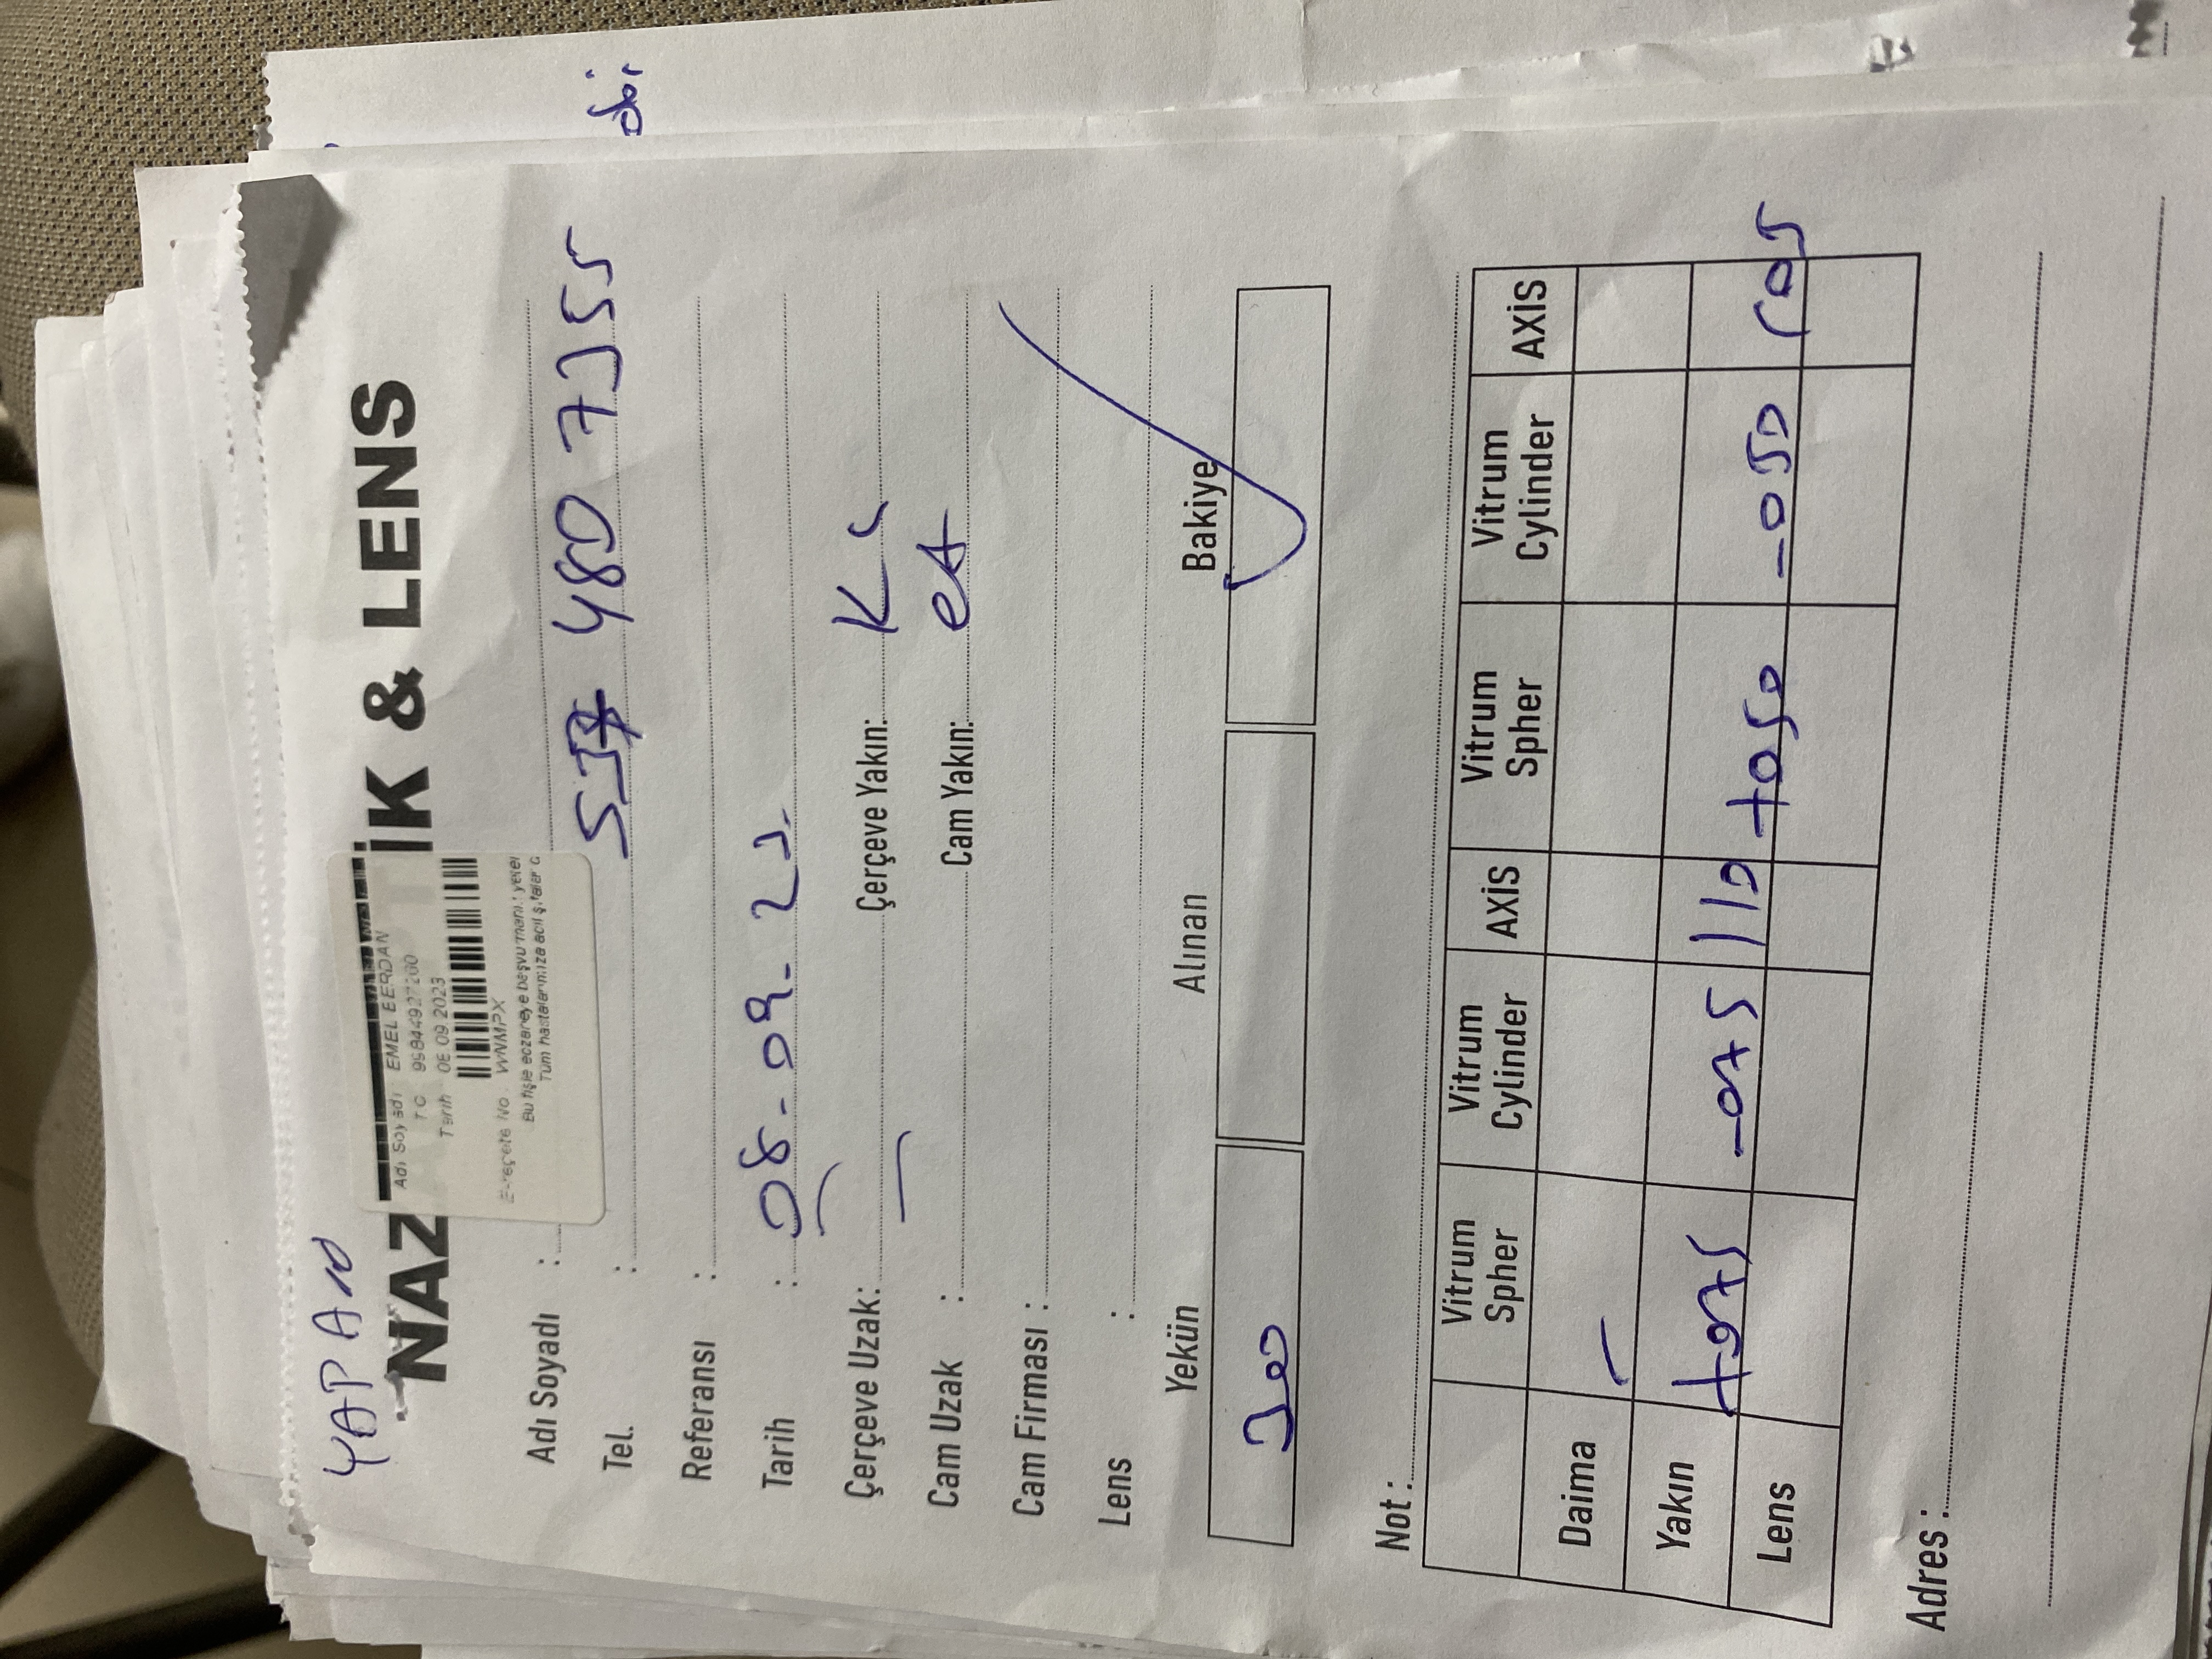 YAPAN
NAZ TİK & LENS
Adı Soyadı : EMEL BERDAN
TC 99844927200
Tarih : 06.09.2023
E-reçete No : WNMPX
Bu fişle eczaneye başvurmanız yeter
Tüm hastalarımıza acil şifalar d
Adı Soyadı :
Tel. : 537 480 7355
Referansı :
Tarih : 08-09-23.
Çerçeve Uzak: Çerçeve Yakın: K
Cam Uzak : Cam Yakın:
Cam Firması :
Lens :
Yekün Alınan Bakiye
300
Not :
Vitrum Spher Vitrum Cylinder AXİS Vitrum Spher Vitrum Cylinder AXİS
Daima
Yakın +075 -075 110 +050 -050 105
Lens
Adres :